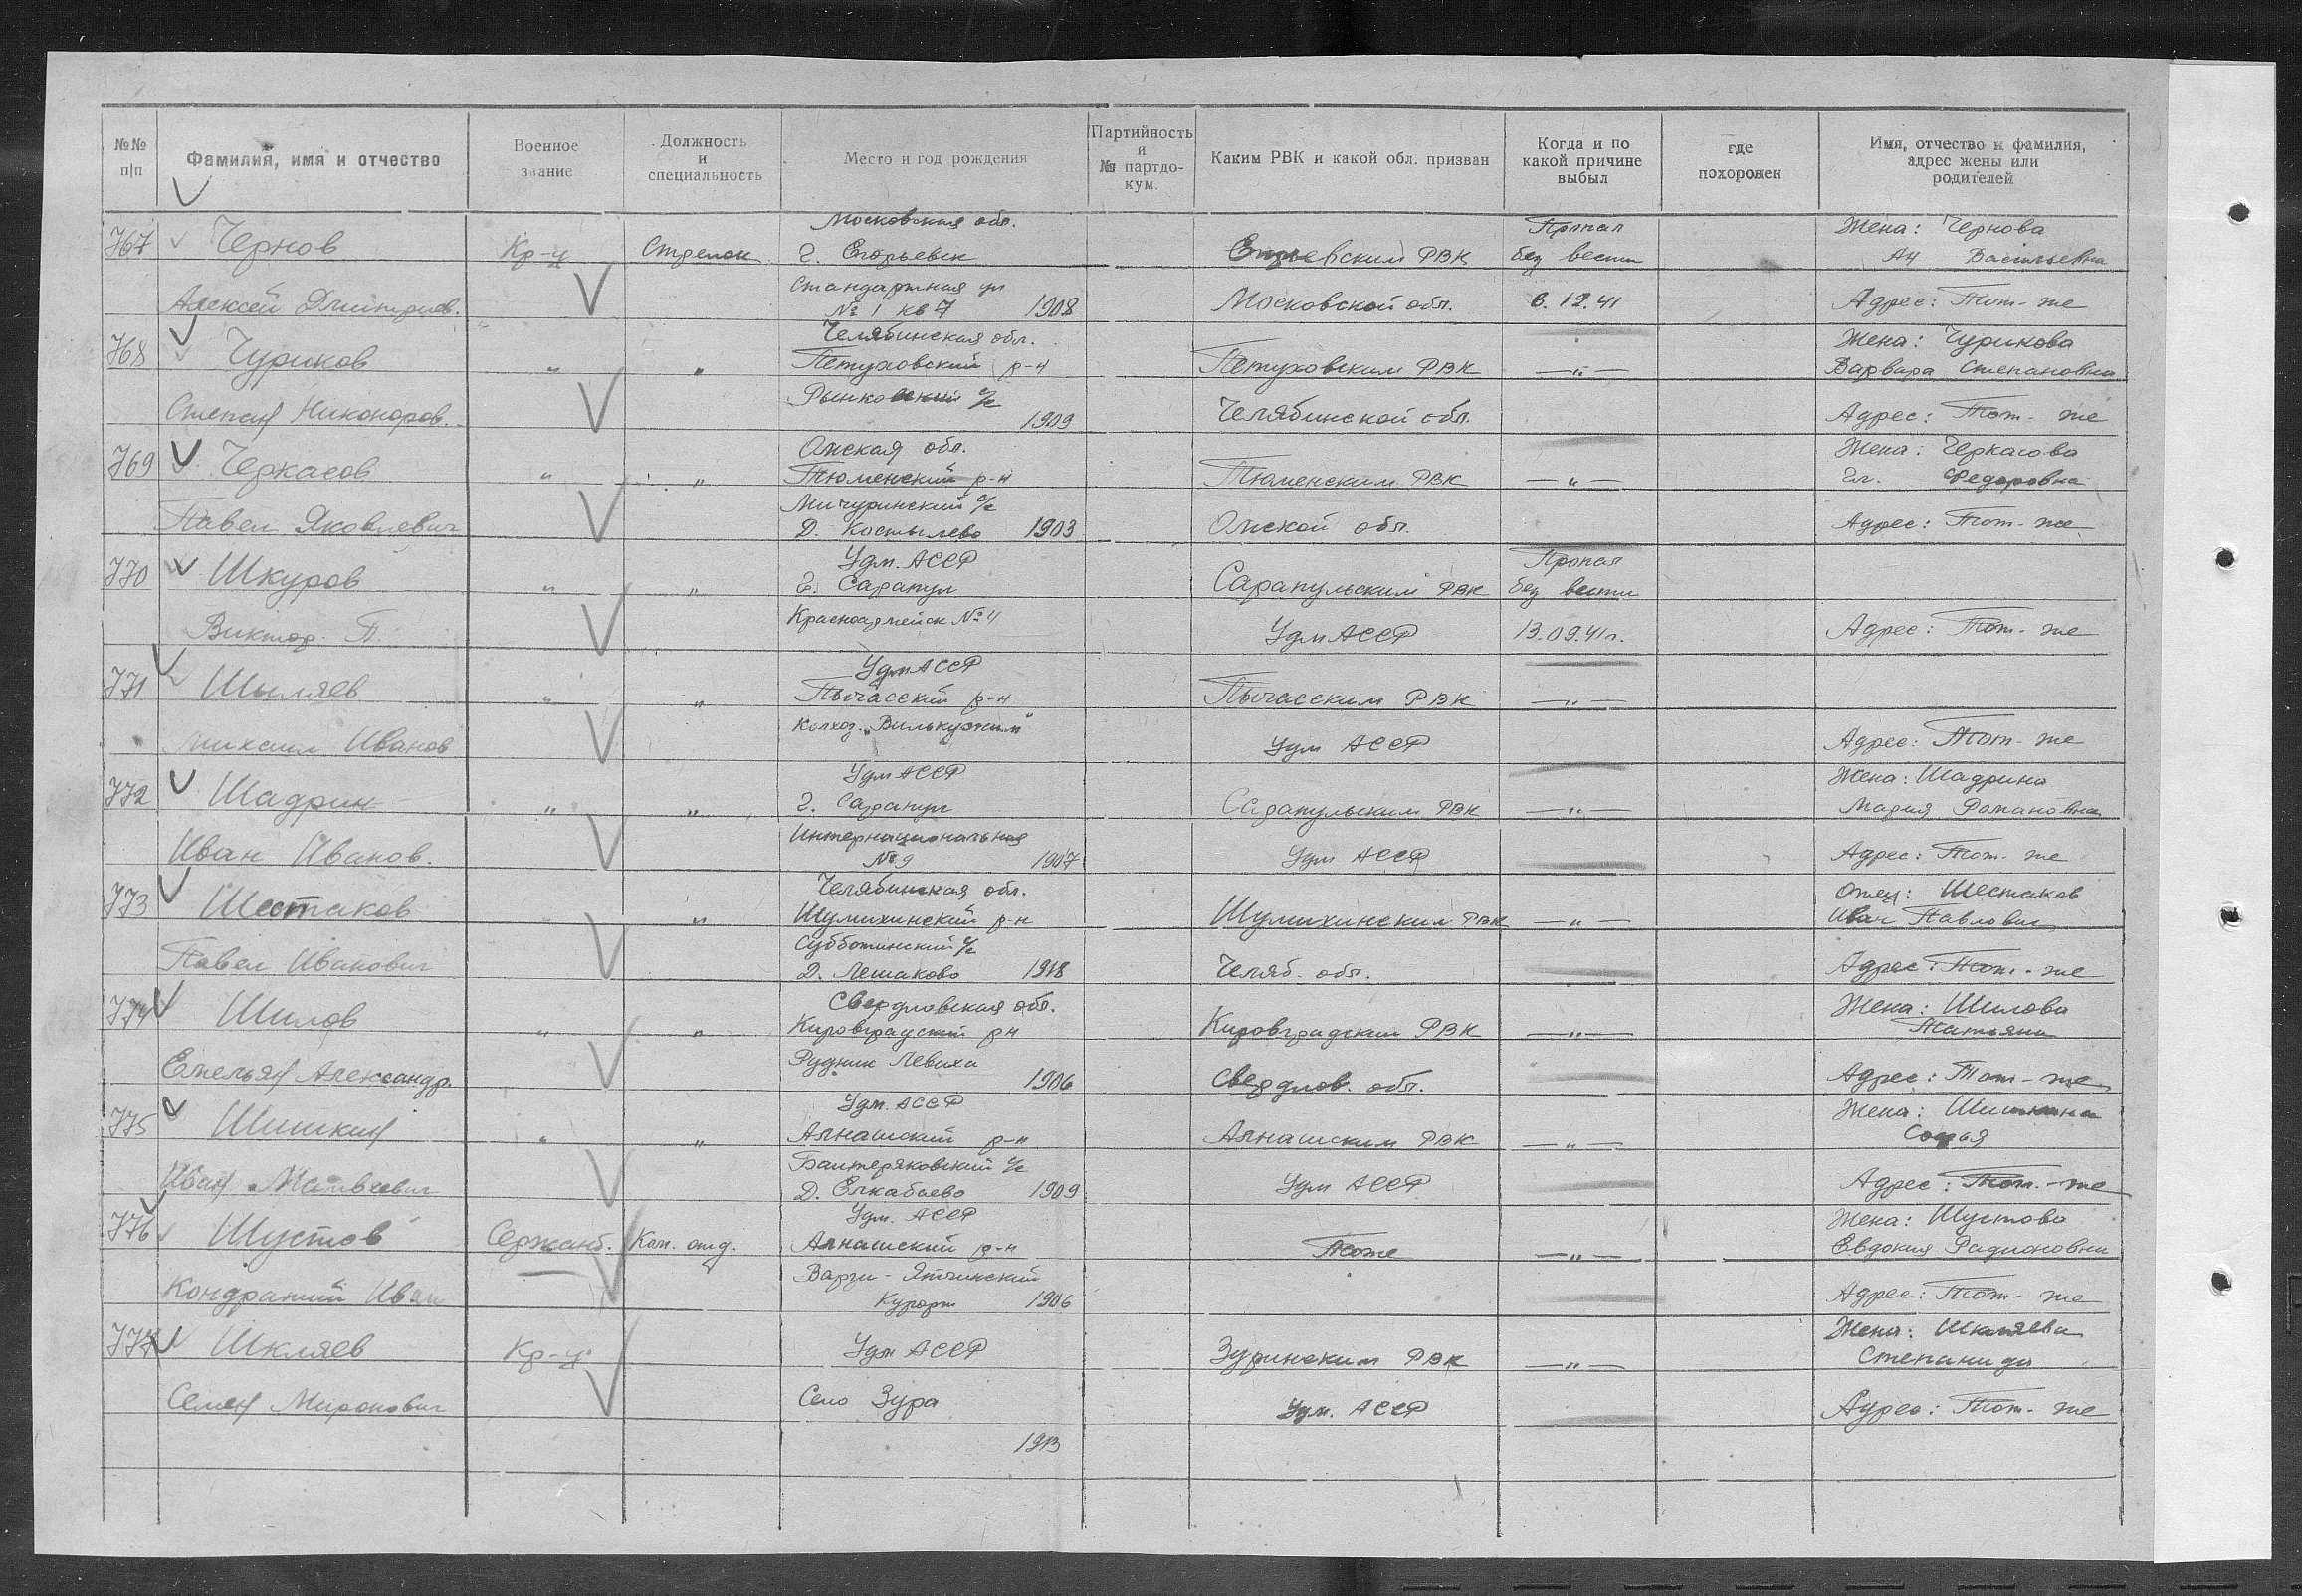 №№ п|п
Фамилия, имя и отчество
Военное звание
Должность и специальность
Место и год рождения
Партийность и № партдокум.
Каким РВК и какой обл. призван
Когда и по какой причине выбыл
где похоронен
Имя, отчество и фамилия, адрес жены или родителей
Московская обл. Пропал Жена: Чернова
767 Чернов Кр-ц Стрелок г. Егорьевск РВК без вести Ан Васильевна
Стандартная ул
Алексей Дмитриев. № 1 кв 7 1908 Московской обл. 6.12.41 Адрес: Тот-же
Челябинская обл. Жена: Чурикова
768 Чуриков " " Петуховский р-н Петуховским РВК —"— Варвара Степановна
Степан Никоноров. с/с 1909 Челябинской обл. Адрес: Тот-же
Омская обл. Жена: Черкасова
769 Черкасов " " Тюменский р-н Тюменским РВК —"— Федоровна
Мичуринский с/с
Павел Яковлевич Д. Костылево 1903 Омской обл. Адрес: Тот-же
Удм. АССР Пропал
770 Шкуров " " г. Сарапул Сарапульским РВК без вести
Виктор. П. Красноармейск №4 Удм АССР 13.09.41г. Адрес: Тот-же
Удм АССР
771 Шиляев " " Пычасский р-н Пычасским РВК —"—
Михаил Иванов Колхоз. Удм АССР Адрес: Тот-же
Удм АССР Жена: Шадрина
772 Шадрин " " г. Сарапул Сарапульским РВК —"— Мария Романовна
Интернациональная
Иван Иванов. №9 1907 Удм АССР Адрес: Тот-же
Челябинская обл. Отец: Шестаков
773 Шестаков " " Шумихинский р-н Шумихинским РВК —"— Иван Павлович
Субботинский с/с
Павел Иванович Д. Лешаково 1918 Челяб. обл. Адрес: Тот-же
Свердловская обл. Жена: Шилова
774 Шилов " " Кировградский рн Кировградским РВК —"— Татьяна
Рудник Левиха
Емельян Александр. 1906 Свердлов. обл. Адрес: Тот-же
Удм. АССР Жена: Шишкина
775 Шишкин " " Алнашский р-н Алнашским РВК —"— Софья
с/с
Иван Матвеевич Д. Елкабаево 1909 Удм АССР Адрес: Тот-же
Удм. АССР Жена: Шустова
776 Шустов Сержант. Ком. отд. Алнашский р-н Тоже —"— Евдокия Радионовна
Варзи-Ятчинский
Кондратий Иван Курорт 1906 Адрес: Тот-же
Жена: Шкляева
777 Шкляев Кр-ц Удм АССР Зуринским РВК —"— Степанида
Семен Миронович Село Зура Удм. АССР Адрес: Тот-же
1913